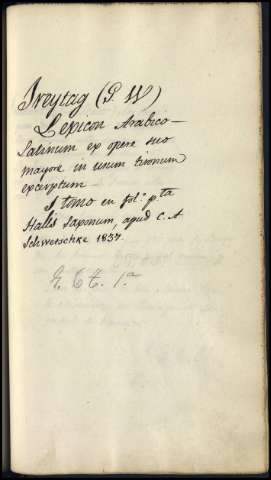 Freytag (P. W)
Lexicon Arabico-
Latinum ex opere suo
mayore in usum tironum
excerptum
1 tomo en fol.º p.ta
Halis Saxonum, apud C. A
Schwerschke 1837.
E. 6 t. 1.ª